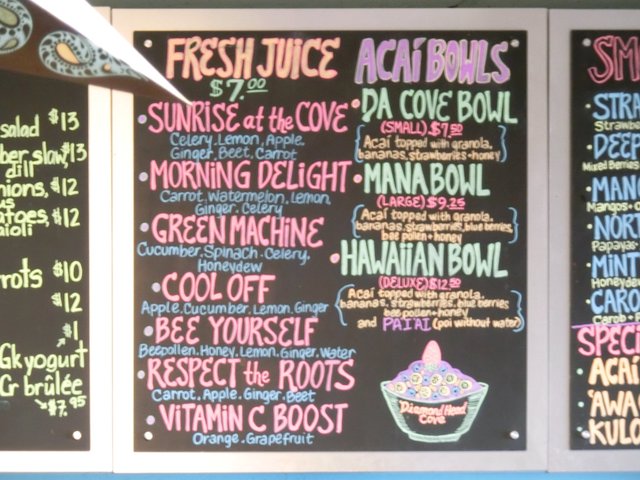 salad $13
slaw $13
dill
$12
$12
aioli
$10
$12
$1
Gk yogurt
Cr brûlée
$7.95
FRESH JUICE
$7.00
• SUNRISE at the COVE
Celery, Lemon, Apple,
Ginger, Beet, Carrot
• MORNING DELIGHT
Carrot, Watermelon, Lemon,
Ginger, Celery
• GREEN MACHINE
Cucumber, Spinach, Celery,
Honeydew
• COOL OFF
Apple, Cucumber, Lemon, Ginger
• BEE YOURSELF
Beepollen, Honey, Lemon, Ginger, Water
• RESPECT the ROOTS
Carrot, Apple, Ginger, Beet
• VITAMIN C BOOST
Orange, Grapefruit
ACAÍ BOWLS
• DA COVE BOWL
(SMALL) $7.50
Acaí topped with granola,
bananas, strawberries + honey
• MANA BOWL
(LARGE) $9.25
Acaí topped with granola,
bananas, strawberries, blue berries,
bee pollen + honey
• HAWAIIAN BOWL
(DELUXE) $12.50
Acaí topped with granola,
bananas, strawberries, blue berries
bee pollen + honey
and PAI'AI (poi without water)
Diamond Head
Cove
Mixed Berries
ACAI
'AWA
KULO